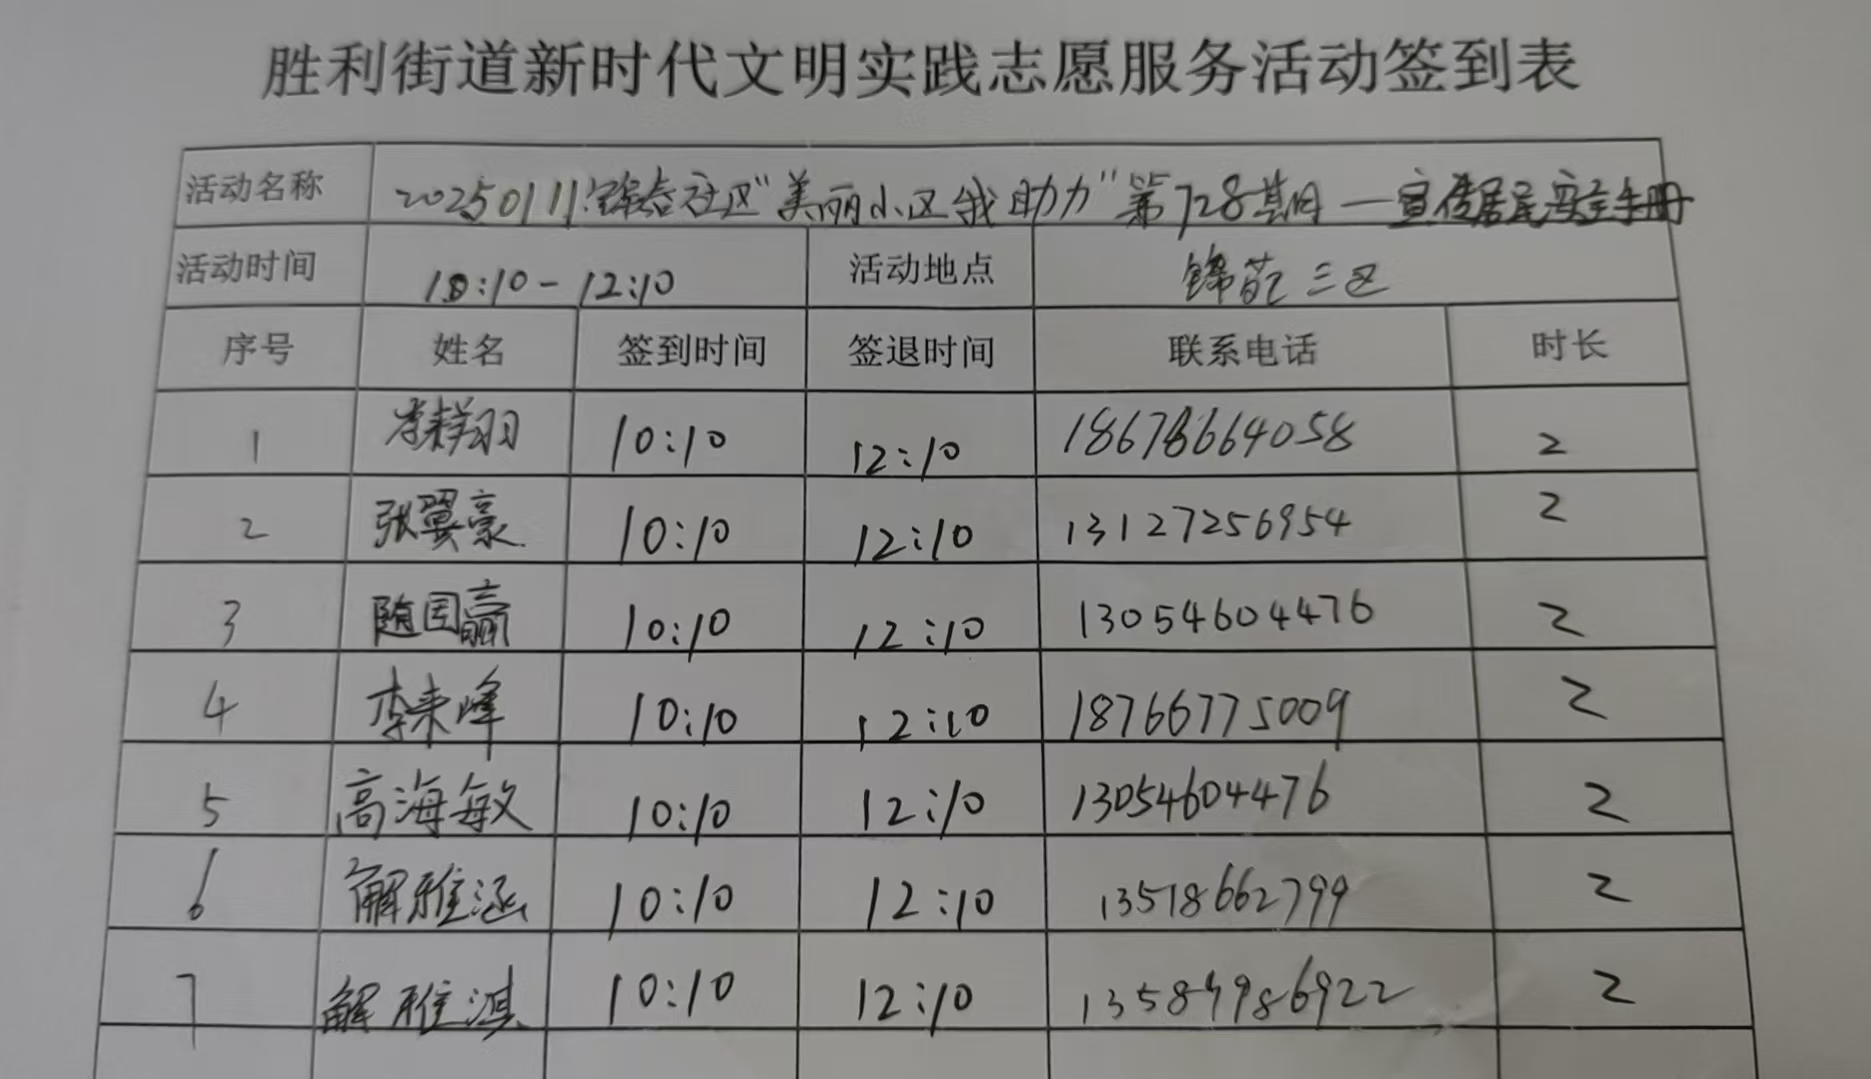 胜利街道新时代文明实践志愿服务活动签到表
活动名称 20250111锦苑社区“美丽小区我助力”第728期—宣传居民安全手册
活动时间 10:10-12:10 活动地点 锦苑三区
序号 姓名 签到时间 签退时间 联系电话 时长
1 李翔羽 10:10 12:10 18678664058 2
2 张翼豪 10:10 12:10 13127256954 2
3 随国赢 10:10 12:10 13054604476 2
4 李来峰 10:10 12:10 18766775009 2
5 高海敏 10:10 12:10 13054604476 2
6 解雅涵 10:10 12:10 13518662799 2
7 解雅淇 10:10 12:10 2